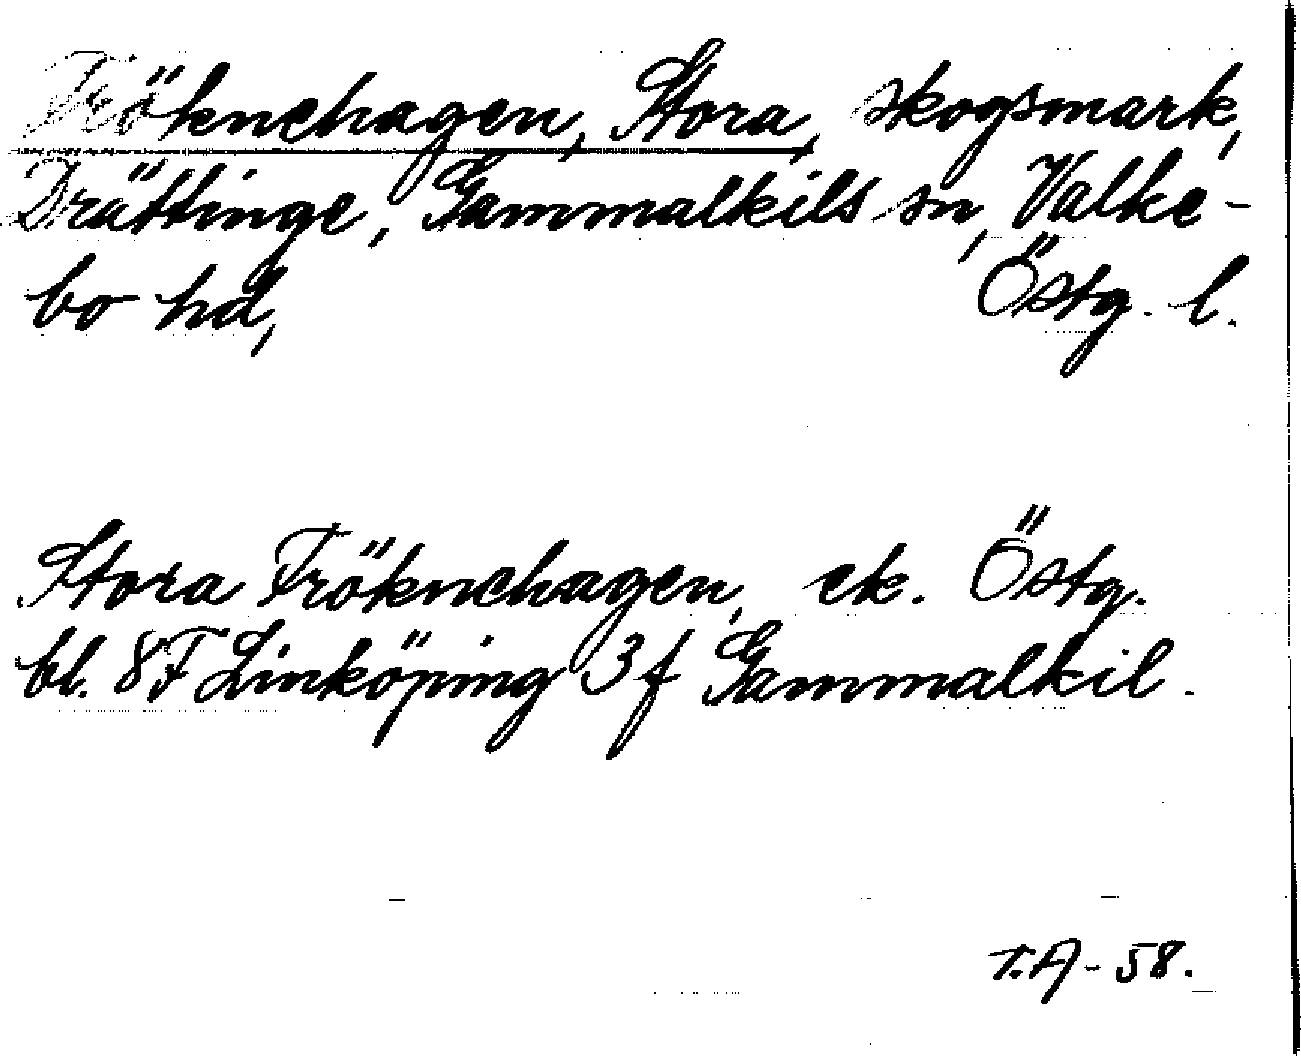 Fröknehagen, Stora, skogsmark,
Drättinge, Gammalkils sn, Valke-
bo hd, Östg. l.
Stora Fröknehagen, ek. Östg.
bl. 8F Linköping 3f Gammalkil.
T.A-58.